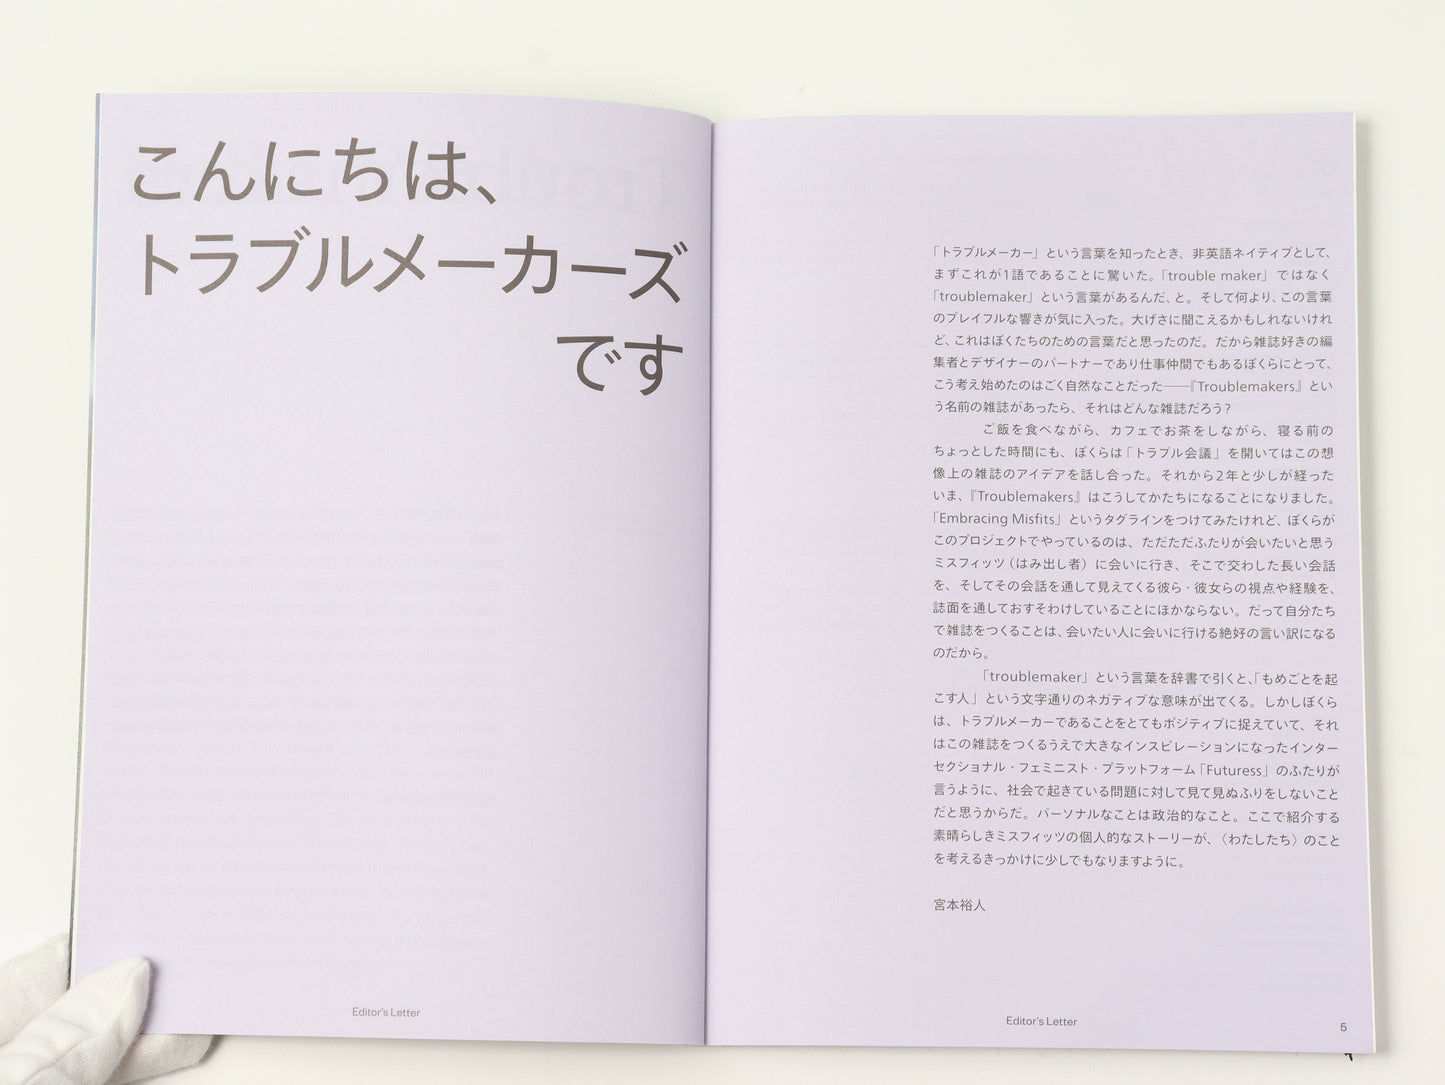 こんにちは、
トラブルメーカーズ
です
「トラブルメーカー」という言葉を知ったとき、非英語ネイティブとして、
まずこれが1語であることに驚いた。「trouble maker」ではなく
「troublemaker」という言葉があるんだ、と。そして何より、この言葉
のプレイフルな響きが気に入った。大げさに聞こえるかもしれないけれ
ど、これはぼくたちのための言葉だと思ったのだ。だから雑誌好きの編
集者とデザイナーのパートナーであり仕事仲間でもあるぼくらにとって、
こう考え始めたのはごく自然なことだった──『Troublemakers』とい
う名前の雑誌があったら、それはどんな雑誌だろう?
ご飯を食べながら、カフェでお茶をしながら、寝る前の
ちょっとした時間にも、ぼくらは「トラブル会議」を開いてはこの想
像上の雑誌のアイデアを話し合った。それから2年と少しが経った
いま、『Troublemakers』はこうしてかたちになることになりました。
「Embracing Misfits」というタグラインをつけてみたけれど、ぼくらが
このプロジェクトでやっているのは、ただただふたりが会いたいと思う
ミスフィッツ(はみ出し者)に会いに行き、そこで交わした長い会話
を、そしてその会話を通して見えてくる彼ら・彼女らの視点や経験を、
誌面を通しておすそわけしていることにほかならない。だって自分たち
で雑誌をつくることは、会いたい人に会いに行ける絶好の言い訳になる
のだから。
「troublemaker」という言葉を辞書で引くと、「もめごとを起
こす人」という文字通りのネガティブな意味が出てくる。しかしぼくら
は、トラブルメーカーであることをとてもポジティブに捉えていて、それ
はこの雑誌をつくるうえで大きなインスピレーションになったインター
セクショナル・フェミニスト・プラットフォーム「Futuress」のふたりが
言うように、社会で起きている問題に対して見て見ぬふりをしないこと
だと思うからだ。パーソナルなことは政治的なこと。ここで紹介する
素晴らしきミスフィッツの個人的なストーリーが、〈わたしたち〉のこと
を考えるきっかけに少しでもなりますように。
宮本裕人
Editor's Letter
Editor's Letter
5